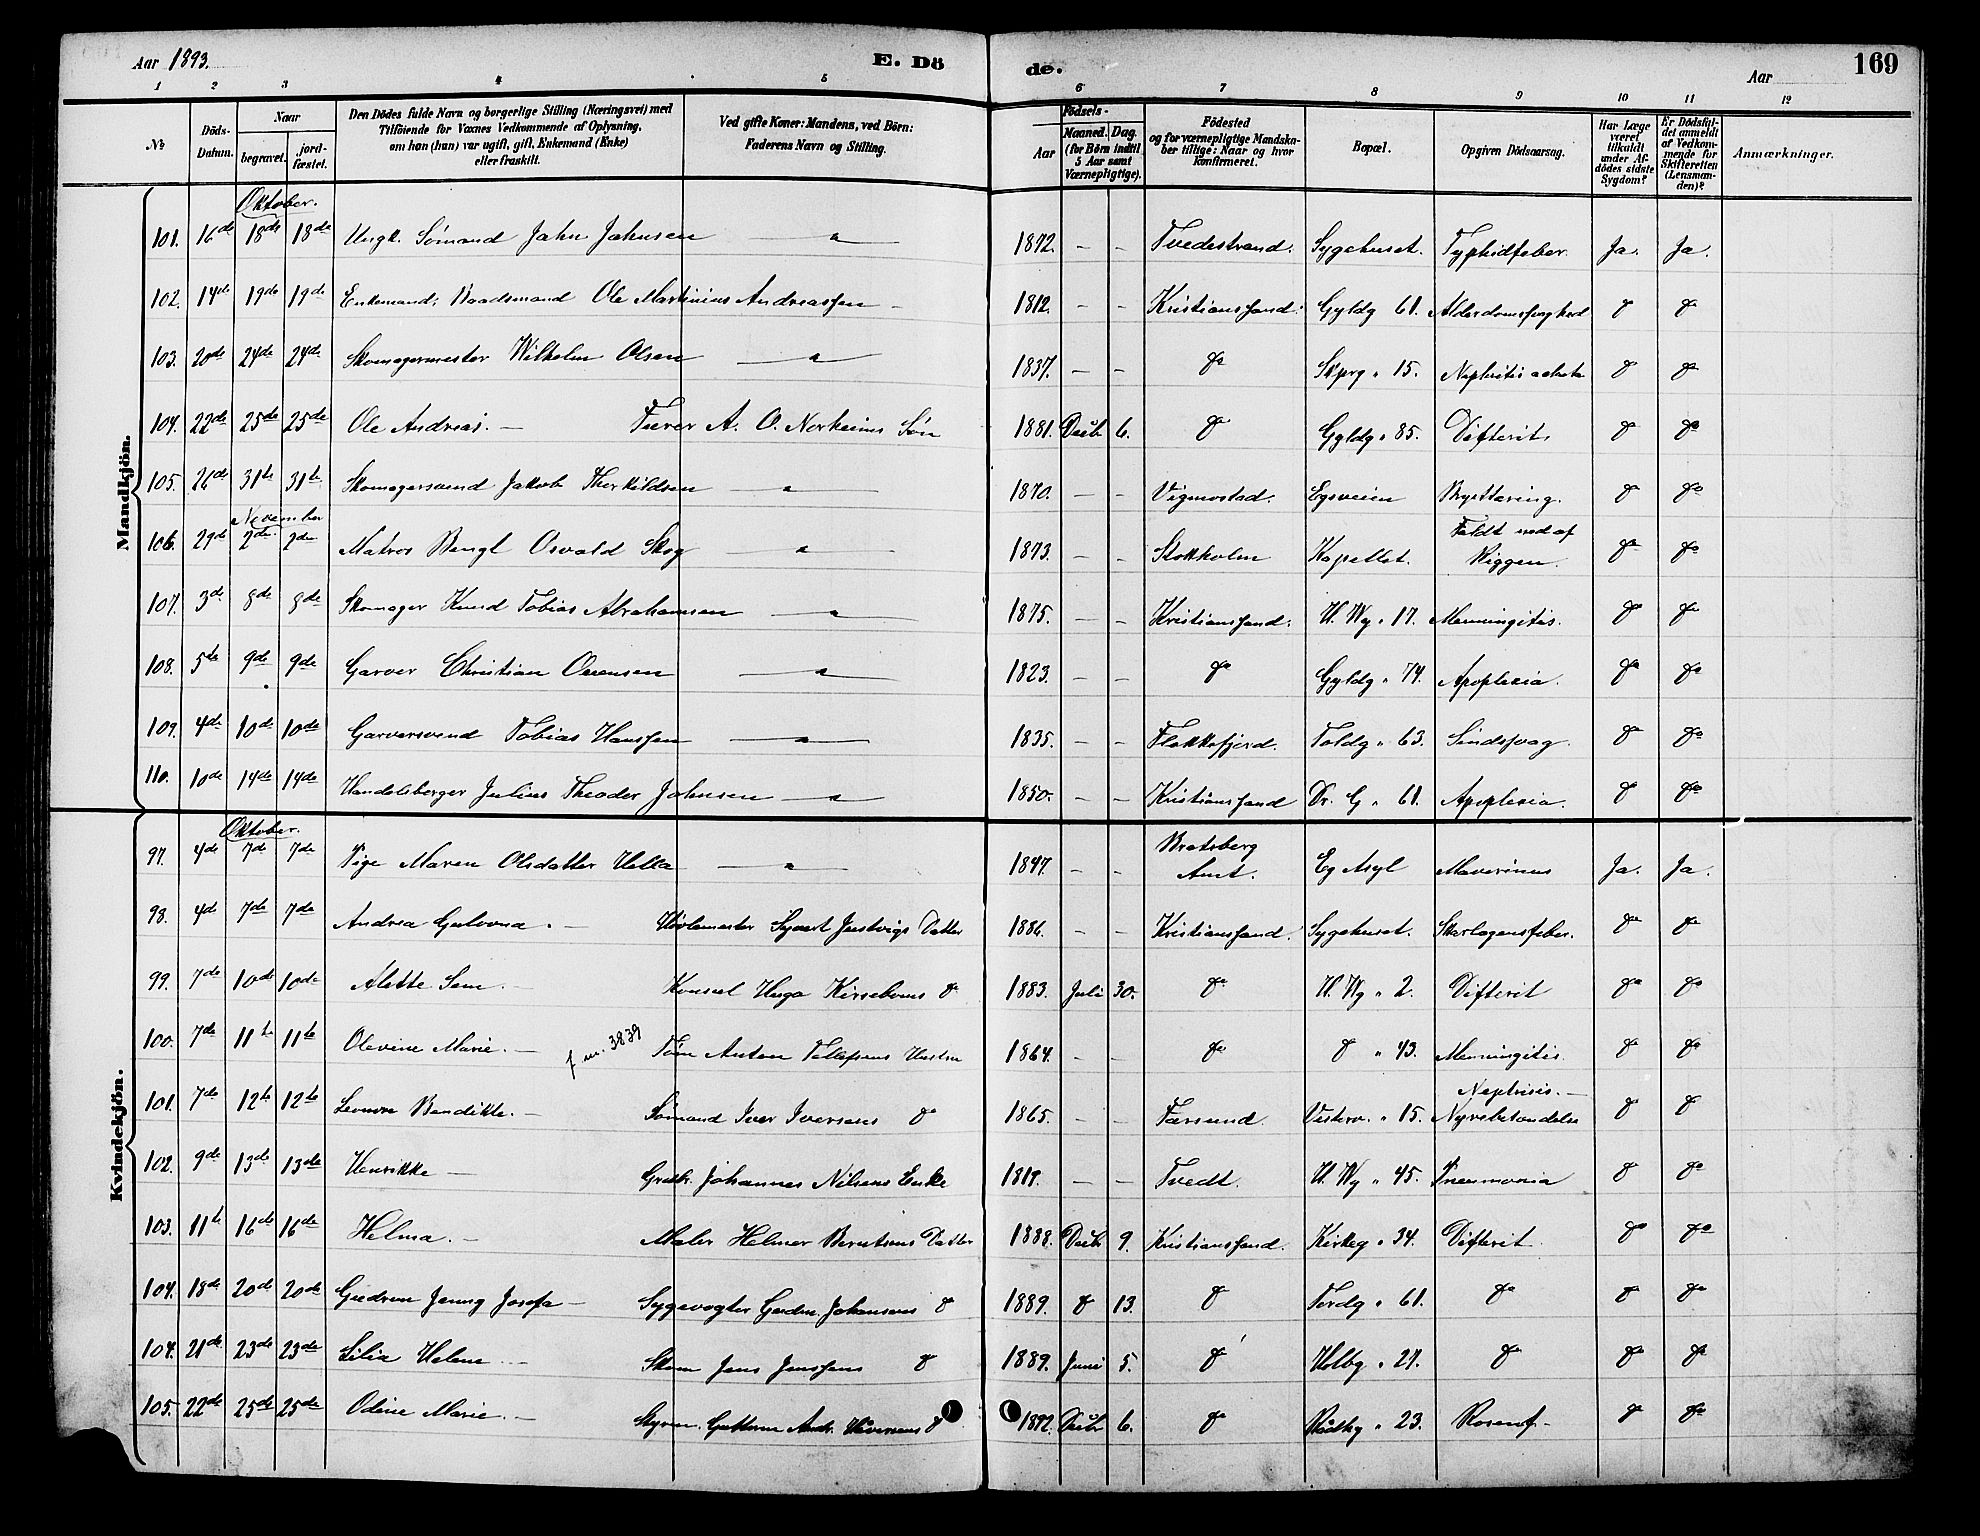 Aar 1893. E. Dö de. Aar 169
1 2 3 4 5 6 7 8 9 10 11 12
№ Döds-Datum. Naar begravet. jord-fæstet. Den Dödes fulde Navn og borgerlige Stilling (Næringsvei) med Tilföiende for Voxnes Vedkommende af Oplysning, om han (hun) var ugift, gift, Enkemand (Enke) eller fraskilt. Ved gifte Koner: Mandens, ved Börn: Faderens Navn og Stilling. Födsels- Aar Maaned. Dag. (for Börn indtil 5 Aar samt Værnepligtige). Födested og for værnepligtige Mandska-ber tillige: Naar og hvor konfirmeret. Bopæl. Opgiven Dödsaarsag. Har Læge været tilkaldt under Af-dödes sidste Sygdom? Er Dödsfal-det anmeldt af Vedkom-mende for Skifteretten (Lensman-den)? Anmærkninger.
Mandkjön.
Oktober.
101. 16de 18de 18de Ungk. Sömand Jahn Jahnsen — " — 1872. — — Tvedestrand. Sygehuset. Typhidfeber. Ja. Ja.
102. 14de 19de 19de Enkemand: Baadsmand Ole Martinius Andreassen — 1812. — — Kristianssand. Gyldg 61. Alderdomssvaghed do do
103. 20de 24de 24de Skomagermester Wilhelm Olsen — " — 1837. — — do Skprg " 15. Nephritis do do
104. 22de 25de 25de Ole Andreas. — A. O. Norheims Sön 1881. Decbr 6. do Gyldg " 85. Difterit. do do
105. 26de 31te 31te Skomagersvend Jakob Therkildsen — " — 1870. — — Vigmostad. Egsveien Brysttæring. do do
November
106. 29de 2den 2den Matros Bengt Osvald Skog — " — 1873. — — Stokholm Kapellet. Faldt ned af Riggen. do do
107. 3de 8de 8de Skomager Knud Tobias Abrahamsen — " — 1875. — — Kristianssand. V. Wg " 17. Menningitis. do do
108. 5te 9de 9de Garver Christian Orensen — " — 1823. — — do Gyldg " 74. Apoplexia. do do
109. 4de 10de 10de Garversvend Tobias Hanssen — " — 1835. — — Flekkefjord. Toldg " 63. Sindssvag. do do
110. 10de 14de 14de Handelsborger Julius Theodor Johnsen — " — 1850. — — Kristianssand Dr. G " 61. Apoplexia. do do
Kvindekjön.
Oktober.
97. 4de 7de 7de Pige Maren Olsdatter Hella — " — 1847. — — Bratsberg Amt. Eg Asyl Ja. Ja.
98. 4de 7de 7de Andrea Gulovna. — Syvert Justvigs Datter 1886. — — Kristianssand. Sygehuset. Skarlagensfeber. do do
99. 7de 10de 10de Alette Sem. — Konsul Hugo Kirseboms do 1883. Juli 30. do V. Wg " 2. Difterit do do
100. 7de 11te 11te Olevine Marie. — f. m. 3839 Töm Anton Tellefsens Hustru 1864. — — do do " 43. Menningitis. do do
101. 7de 12te 12te Leonore Bendikte. — Sömand Iver Iversens do 1865. — — Farsund. Vesterv. " 15. Nephrisis. — Nyrebetændelse do do
102. 9de 13de 13de Henrikke — Johannes Nilsens Enke 1819. — — Tvedt. V. Wg " 45. Pneumonia do do
103. 11te 16de 16de Helma. — Maler Helmer Berntsens Datter 1888. Decbr 9. Kristianssand. Kirkeg " 34. Difterit. do do
104. 18de 20de 20de Gudrun Jenny Josefa — Sygevogter Johansens do 1889. do 13. do Tordg " 61. do do do
104. 21de 23de 23de Lilia Helene — Skom Jens Jenssens do 1889. Juni 5. do Holbg " 27. do do do
105. 22de 25de 25de Odine Marie. — Styrm. Guttorm Andr. do 1892. Decbr 6. do Raadhg " 23. Rosenf. do do